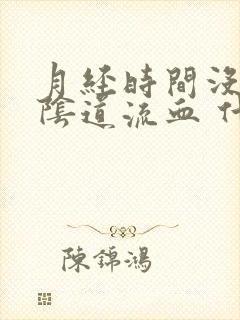 月经時間沒
陰道流血 什
陳錦鴻